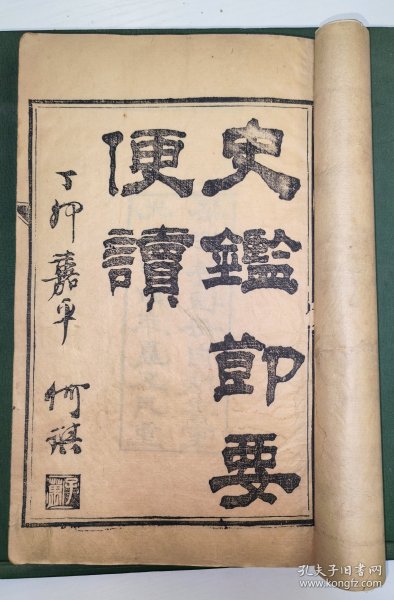 史鑑節要
便讀
丁卯嘉平
何祺
孔夫子旧书网
www.kongfz.com